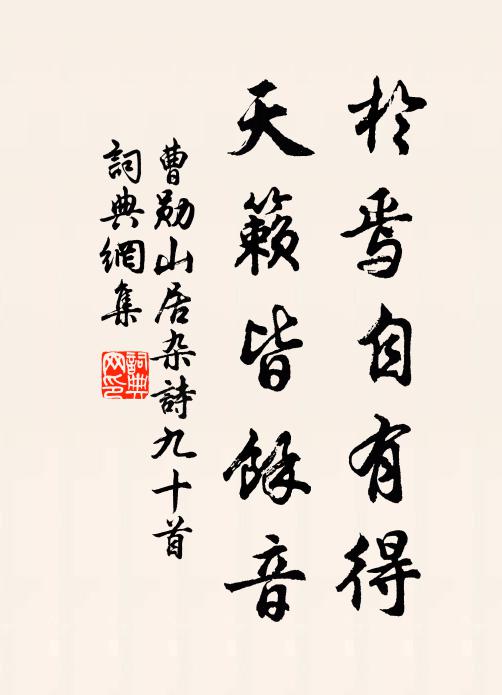 於焉自有得
天籟皆餘音
曹勛山居杂詩九十首
詞典網集
詞典
网印